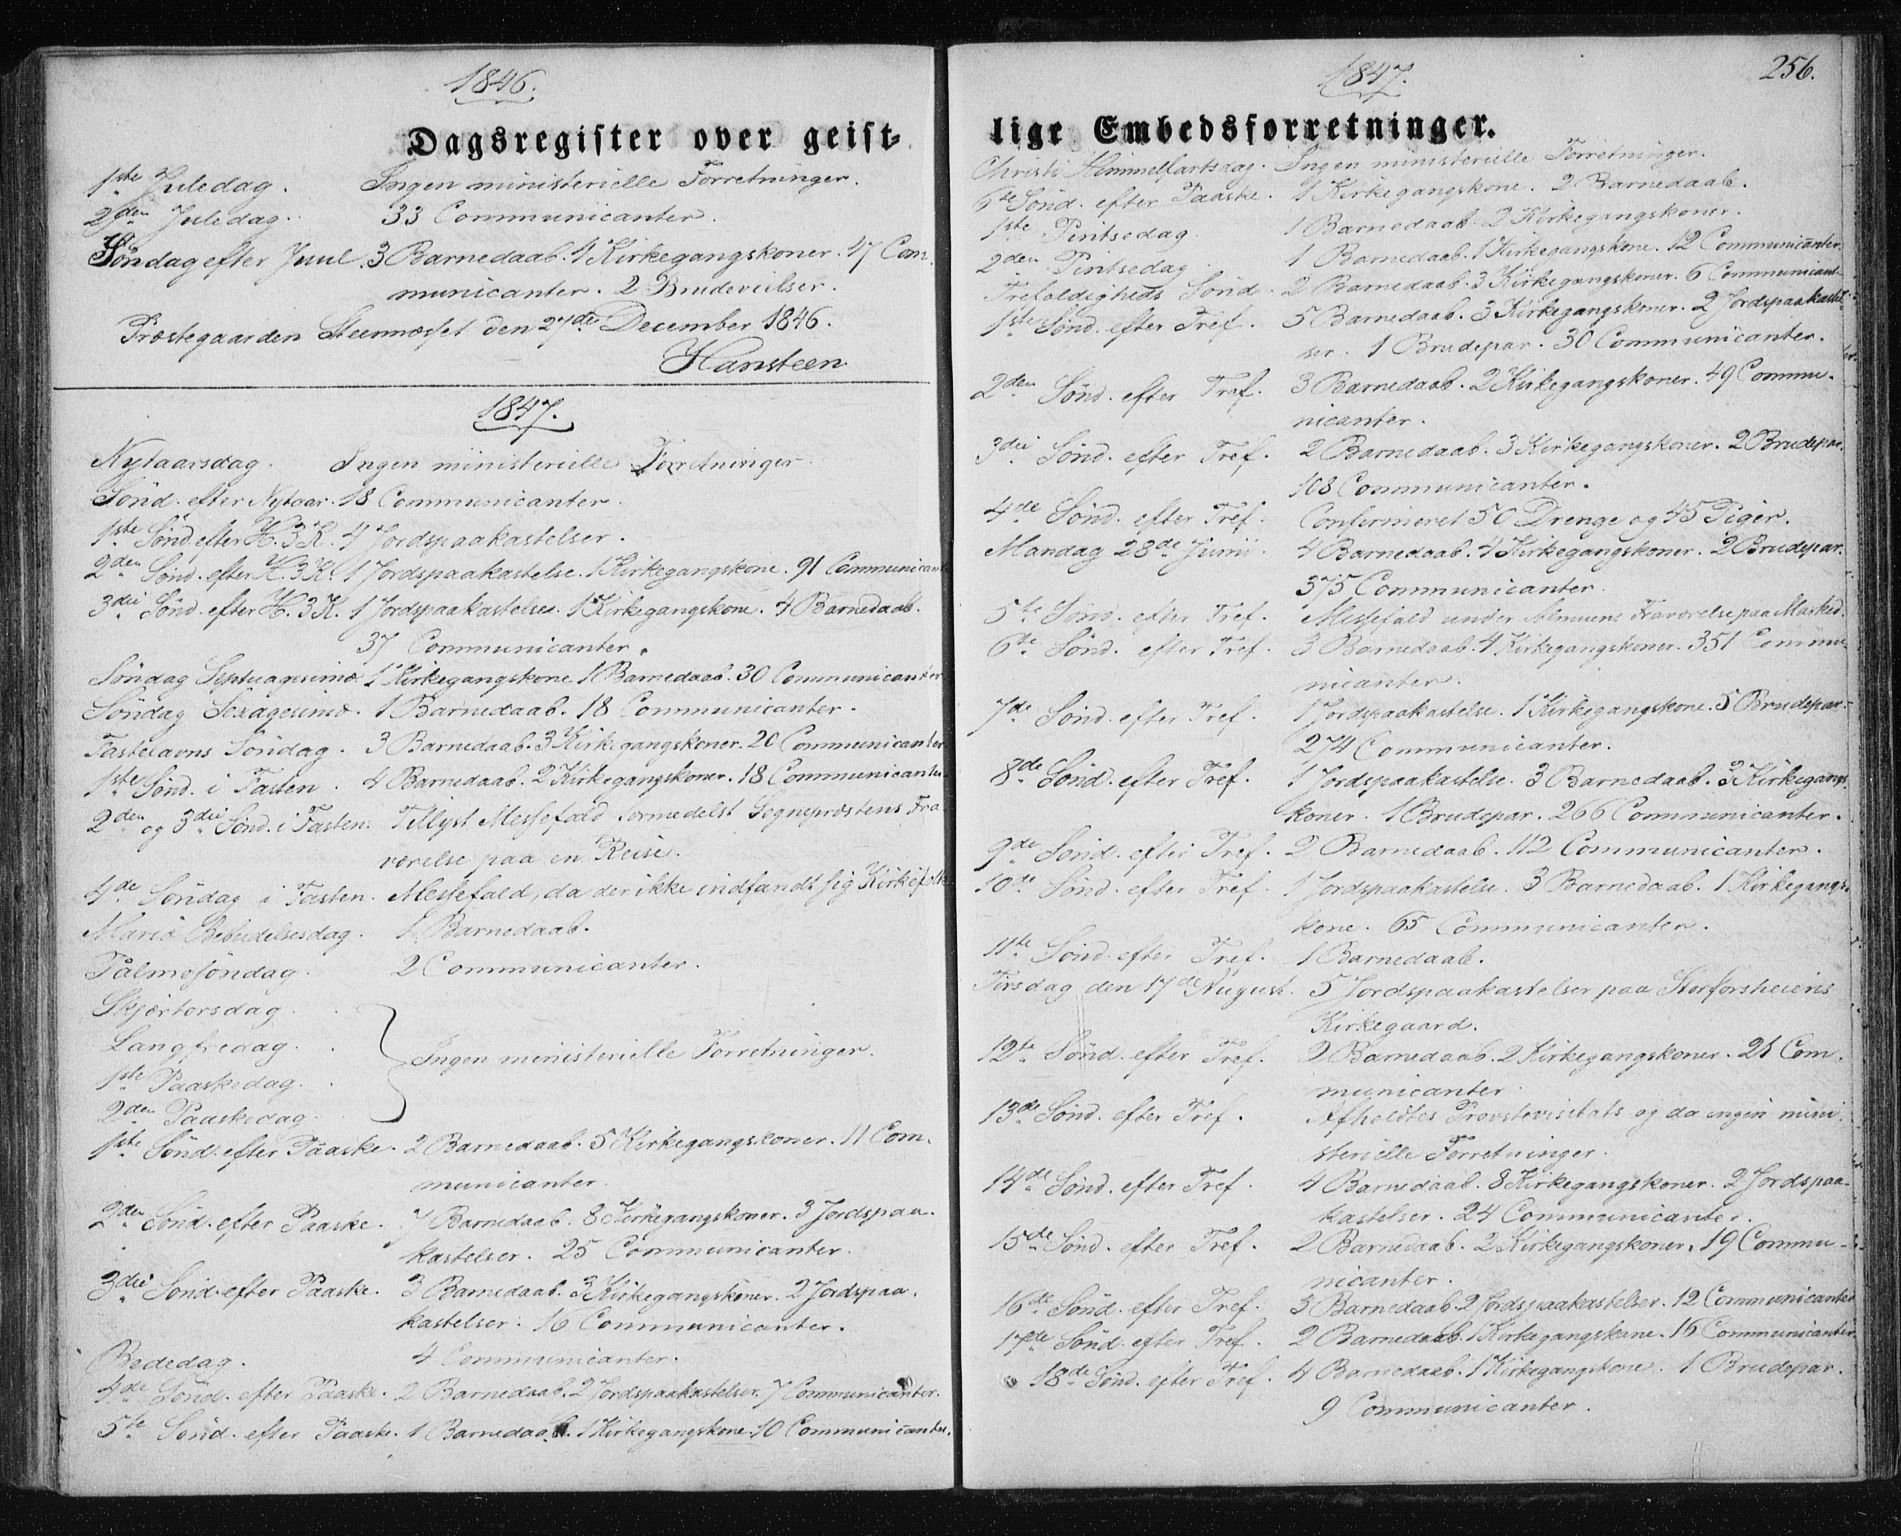 1846.
Dagsregister over geist-
1ste Juledag. Ingen ministerielle Forretninger.
2den Juledag. 33 Communicanter.
Søndag efter Juul. 3 Barnedaab. 1 Kirkegangskoner. 47 Com-
municanter. 2 Brudevielser.
Præstegaarden Steennæsset den 27de December 1846.
Hansteen
1847.
Nytaarsdag. Ingen ministerielle Forretninger.
Sönd. efter Nytaar. 18 Communicanter.
1ste Sönd. efter H. 3 K. 4 Jordspaakastelser.
2den Sönd. efter H. 3 K. 1 Jordspaakastelse. 1 Kirkegangskone. 91 Communicant
3die Sönd. efter H. 3 K. 1 Jordspaakastelse. 1 Kirkegangskone. 4 Barnedaab.
37 Communicanter.
Söndag Septuagesimæ. 1 Kirkegangskone 1 Barnedaab. 30 Communicanter
Söndag Sexagesimæ. 1 Barnedaab. 18 Communicanter.
Fastelavns Söndag. 3 Barnedaab. 3 Kirkegangskoner. 20 Communicanter
1ste Sönd. i Fasten. 4 Barnedaab. 2 Kirkegangskoner. 18 Communicanter.
2den og 3die Sönd. i Fasten. Tillyst Messefald formedelst Sognepræstens Fra
værelse paa en Reise.
4de Söndag i Fasten. Messefald, da der ikke indfandt sig Kirkefolk.
Mariæ Bebudelsesdag. 1 Barnedaab.
Palmesöndag. 2 Communicanter.
Skjærtorsdag.
Langfredag.
Ingen ministerielle Forretninger.
1ste Paaskedag.
2den Paaskedag.
1ste Sönd. efter Paaske. 2 Barnedaab. 5 Kirkegangskoner. 11 Com-
municanter.
2den Sönd. efter Paaske. 7 Barnedaab. 8 Kirkegangskoner. 3 Jordspaa-
kastelser. 25 Communicanter.
3die Sönd. efter Paaske. 3 Barnedaab. 3 Kirkegangskoner. 2 Jordspaa-
kastelser. 16 Communicanter.
Bededag. 4 Communicanter.
4de Sönd. efter Paaske. 2 Barnedaab. 2 Jordspaakastelser. 7 Communicanter.
5te Sönd. efter Paaske. 1 Barnedaab. 1 Kirkegangskone. 10 Communicanter.
1847.
256.
lige Embedsforretninger.
Christi Himmelfartsdag. Ingen ministerielle Forretninger.
6te Sönd. efter Paaske. 1 Kirkegangskone. 2 Barnedaab.
1ste Pintsedag. 1 Barnedaab. 2 Kirkegangskoner.
2den Pintsedag. 1 Barnedaab. 1 Kirkegangskone. 12 Communicanter.
Trefoldigheds Sönd. 2 Barnedaab. 3 Kirkegangskoner. 6 Communicant-
1ste Sönd. efter Tref. 5 Barnedaab. 3 Kirkegangskoner. 2 Jordspaakastel-
ser. 1 Brudepar. 30 Communicanter.
2den Sönd. efter Tref. 3 Barnedaab. 2 Kirkegangskoner. 49 Commu-
nicanter.
3die Sönd. efter Tref. 2 Barnedaab. 3 Kirkegangskoner. 2 Brudepar.
108 Communicanter.
4de Sönd. efter Tref. Confirmeret 50 Drenge og 45 Piger.
Mandag 28de Junii. 4 Barnedaab. 4 Kirkegangskoner. 2 Brudepar.
375 Communicanter.
5te Sönd. efter Tref. Messefald under Almuens Fraværelse paa Marked.
6te Sönd. efter Tref. 3 Barnedaab. 4 Kirkegangskoner. 351 Commu
nicanter.
7de Sönd. efter Tref. 1 Jordspaakastelse. 1 Kirkegangskone. 5 Brudepar.
274 Communicanter.
8de Sönd. efter Tref. 1 Jordspaakastelse. 3 Barnedaab. 3 Kirkegangs-
koner. 1 Brudepar. 266 Communicanter.
9de Sönd. efter Tref. 2 Barnedaab. 112 Communicanter.
10de Sönd. efter Tref. 1 Jordspaakastelse. 3 Barnedaab. 1 Kirkegangs-
kone. 65 Communicanter.
11te Sönd. efter Tref. 1 Barnedaab.
Tirsdag den 17de August. 5 Jordspaakastelser paa Storforsheiens
Kirkegaard.
12te Sönd. efter Tref. 2 Barnedaab. 2 Kirkegangskoner. 21 Com-
municanter.
13de Sönd. efter Tref. Afholdtes Provstevisitats og da ingen mini-
sterielle Forretninger.
14de Sönd. efter Tref. 4 Barnedaab. 8 Kirkegangskoner. 2 Jordspaa-
kastelser. 24 Communicanter.
15de Sönd. efter Tref. 2 Barnedaab. 2 Kirkegangskoner. 19 Commu-
nicanter.
16de Sönd. efter Tref. 3 Barnedaab. 2 Jordspaakastelser. 12 Communicanter
17de Sönd. efter Tref. 2 Barnedaab. 1 Kirkegangskone. 16 Communicanter.
18de Sönd. efter Tref. 4 Barnedaab. 1 Kirkegangskone. 1 Brudepar.
9 Communicanter.